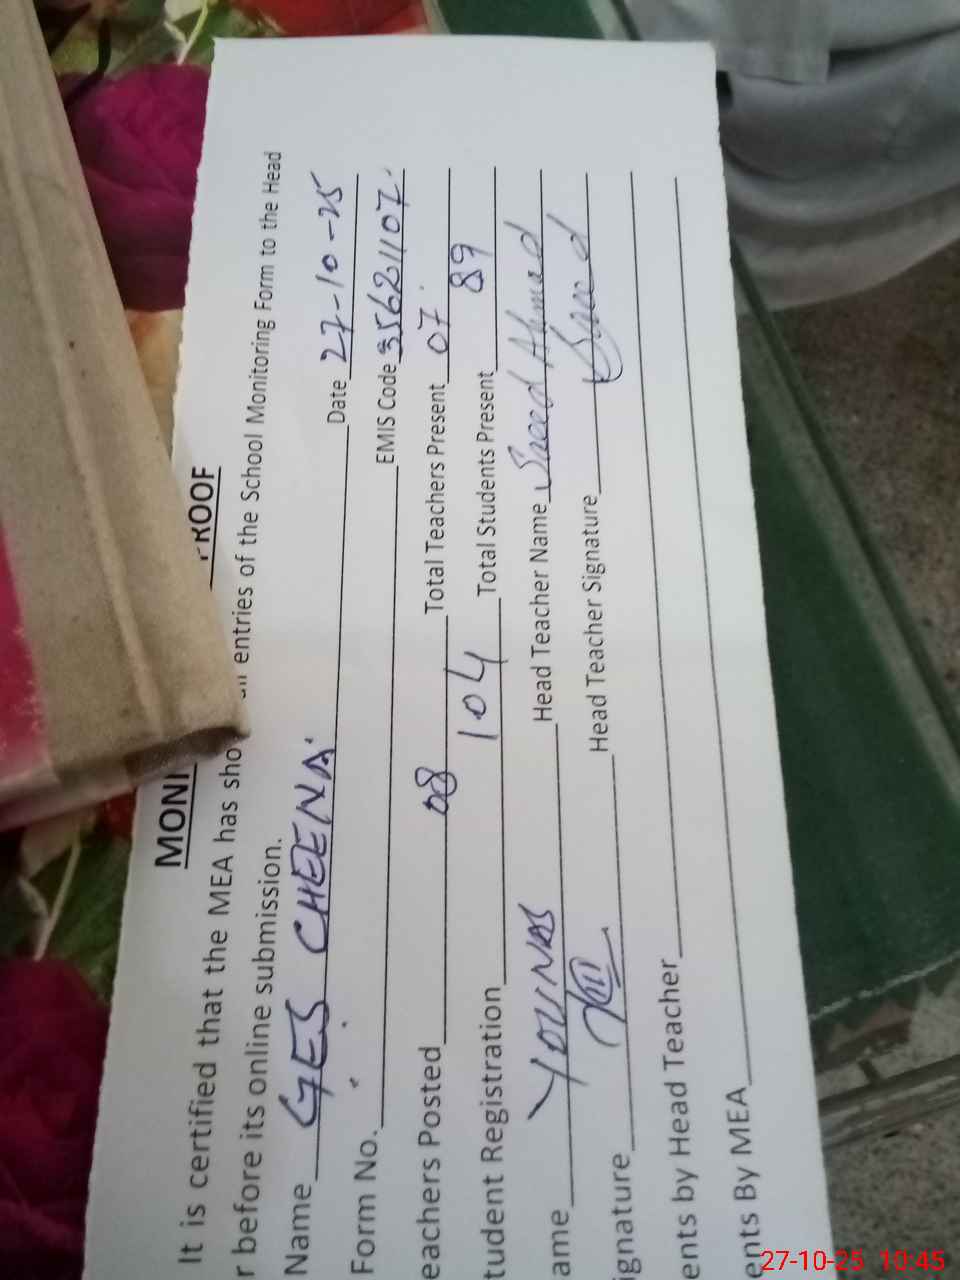 MONI PROOF
It is certified that the MEA has sho all entries of the School Monitoring Form to the Head
r before its online submission.
Name GES CHEENA. Date 27-10-25
Form No. EMIS Code 35621107.
eachers Posted 08 Total Teachers Present 07
tudent Registration 104 Total Students Present 89
ame YOUNAS Head Teacher Name Saeed Ahmad
ignature Head Teacher Signature Saeed
ents by Head Teacher
ents By MEA
27-10-25 10:45